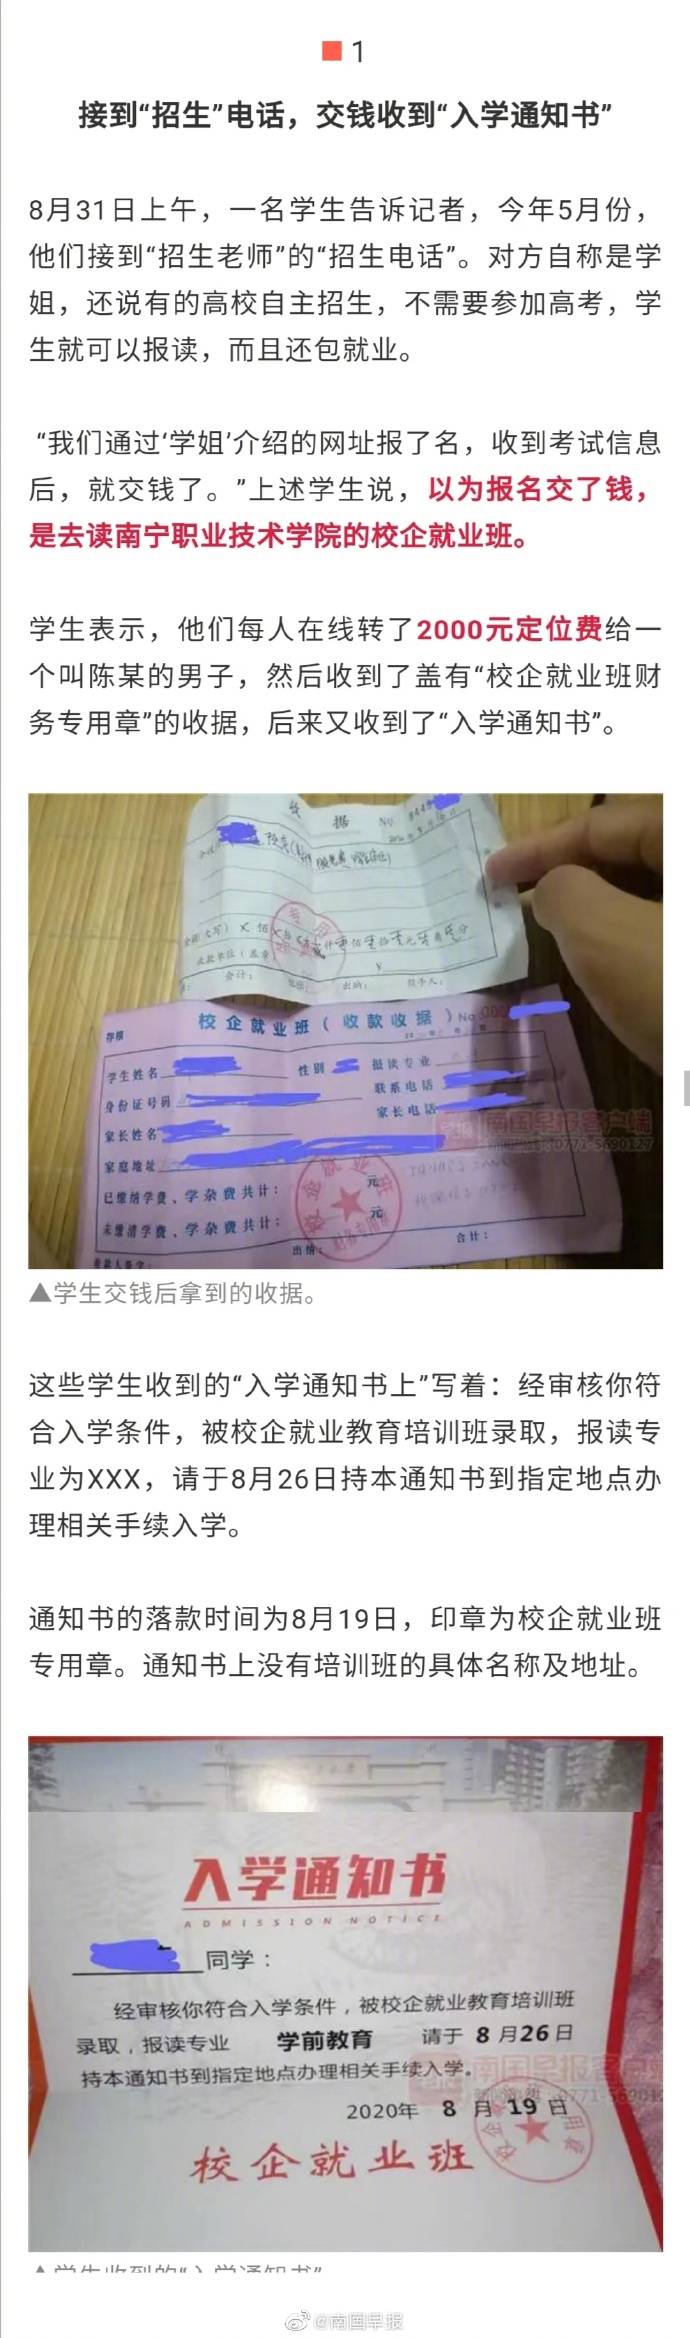 1
接到“招生”电话，交钱收到“入学通知书”
8月31日上午，一名学生告诉记者，今年5月份，
他们接到“招生老师”的“招生电话”。对方自称是学
姐，还说有的高校自主招生，不需要参加高考，学
生就可以报读，而且还包就业。
“我们通过‘学姐’介绍的网址报了名，收到考试信息
后，就交钱了。”上述学生说，以为报名交了钱，
是去读南宁职业技术学院的校企就业班。
学生表示，他们每人在线转了2000元定位费给一
个叫陈某的男子，然后收到了盖有“校企就业班财
务专用章”的收据，后来又收到了“入学通知书”。
收 据 No
金额(大写)
收款单位(盖章
会计： 出纳： 经手人：
校企就业班（收款收据）No
存根
学生姓名 性别 报读专业
身份证号码 联系电话
家长姓名 家长电话
家庭地址
已缴纳学费、学杂费共计： 元
未缴清学费、学杂费共计： 元
出纳： 合计：
早报 南国早报客户端
0771-5690127
▲学生交钱后拿到的收据。
这些学生收到的“入学通知书上”写着：经审核你符
合入学条件，被校企就业教育培训班录取，报读专
业为XXX，请于8月26日持本通知书到指定地点办
理相关手续入学。
通知书的落款时间为8月19日，印章为校企就业班
专用章。通知书上没有培训班的具体名称及地址。
入学通知书
ADMISSION NOTICE
同学：
经审核你符合入学条件，被校企就业教育培训班
录取，报读专业 学前教育 请于 8月26日
持本通知书到指定地点办理相关手续入学。
南国早报客户端
2020年 8 月 19 日
校企就业班
▲学生收到的“入学通知书”
@南国早报